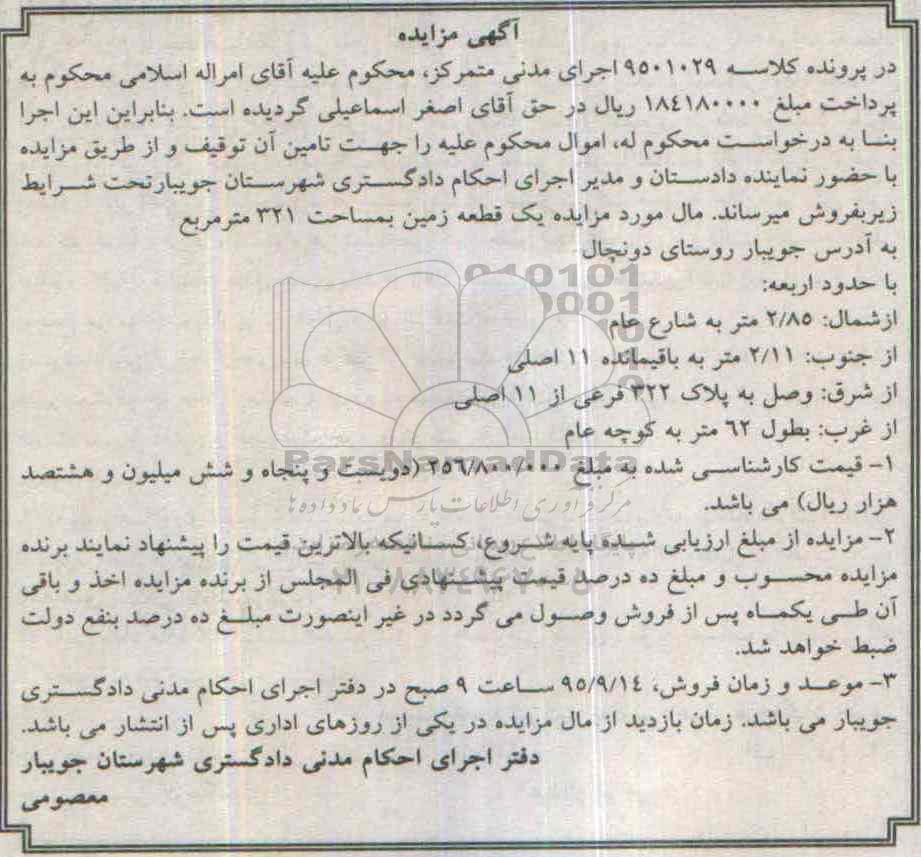 آگهی مزایده
در پرونده کلاسه ۹۵۰۱۰۲۹ اجرای مدنی متمرکز، محکوم علیه آقای امراله اسلامی محکوم به
پرداخت مبلغ ۱۸٤۱۸۰۰۰۰ ریال در حق آقای اصغر اسماعیلی گردیده است. بنابراین این اجرا
بنا به درخواست محکوم له، اموال محکوم علیه را جهت تامین آن توقیف و از طریق مزایده
با حضور نماینده دادستان و مدیر اجرای احکام دادگستری شهرستان جویبارتحت شرایط
زیربفروش میرساند. مال مورد مزایده یک قطعه زمین بمساحت ۳۲۱ مترمربع
به آدرس جویبار روستای دونچال
با حدود اربعه:
ازشمال: ۲/۸۵ متر به شارع عام
از جنوب: ۲/۱۱ متر به باقیمانده ۱۱ اصلی
از شرق: وصل به پلاک ۳۲۲ فرعی از ۱۱ اصلی
از غرب: بطول ٦۲ متر به کوچه عام
ParsNamadData
۱- قیمت کارشناسی شده به مبلغ ۲۵٦/۸۰۰/۰۰۰ (دویست و پنجاه و شش میلیون و هشتصد
هزار ریال) می باشد.
مرکز فرآوری اطلاعات پارس نماد داده ها
۲- مزایده از مبلغ ارزیابی شده پایه شروع، کسانیکه بالاترین قیمت را پیشنهاد نمایند برنده
مزایده محسوب و مبلغ ده درصد قیمت پیشنهادی فی المجلس از برنده مزایده اخذ و باقی
آن طی یکماه پس از فروش وصول می گردد در غیر اینصورت مبلغ ده درصد بنفع دولت
ضبط خواهد شد.
۳- موعد و زمان فروش، ۹۵/۹/۱٤ ساعت ۹ صبح در دفتر اجرای احکام مدنی دادگستری
جویبار می باشد. زمان بازدید از مال مزایده در یکی از روزهای اداری پس از انتشار می باشد.
دفتر اجرای احکام مدنی دادگستری شهرستان جویبار
معصومی